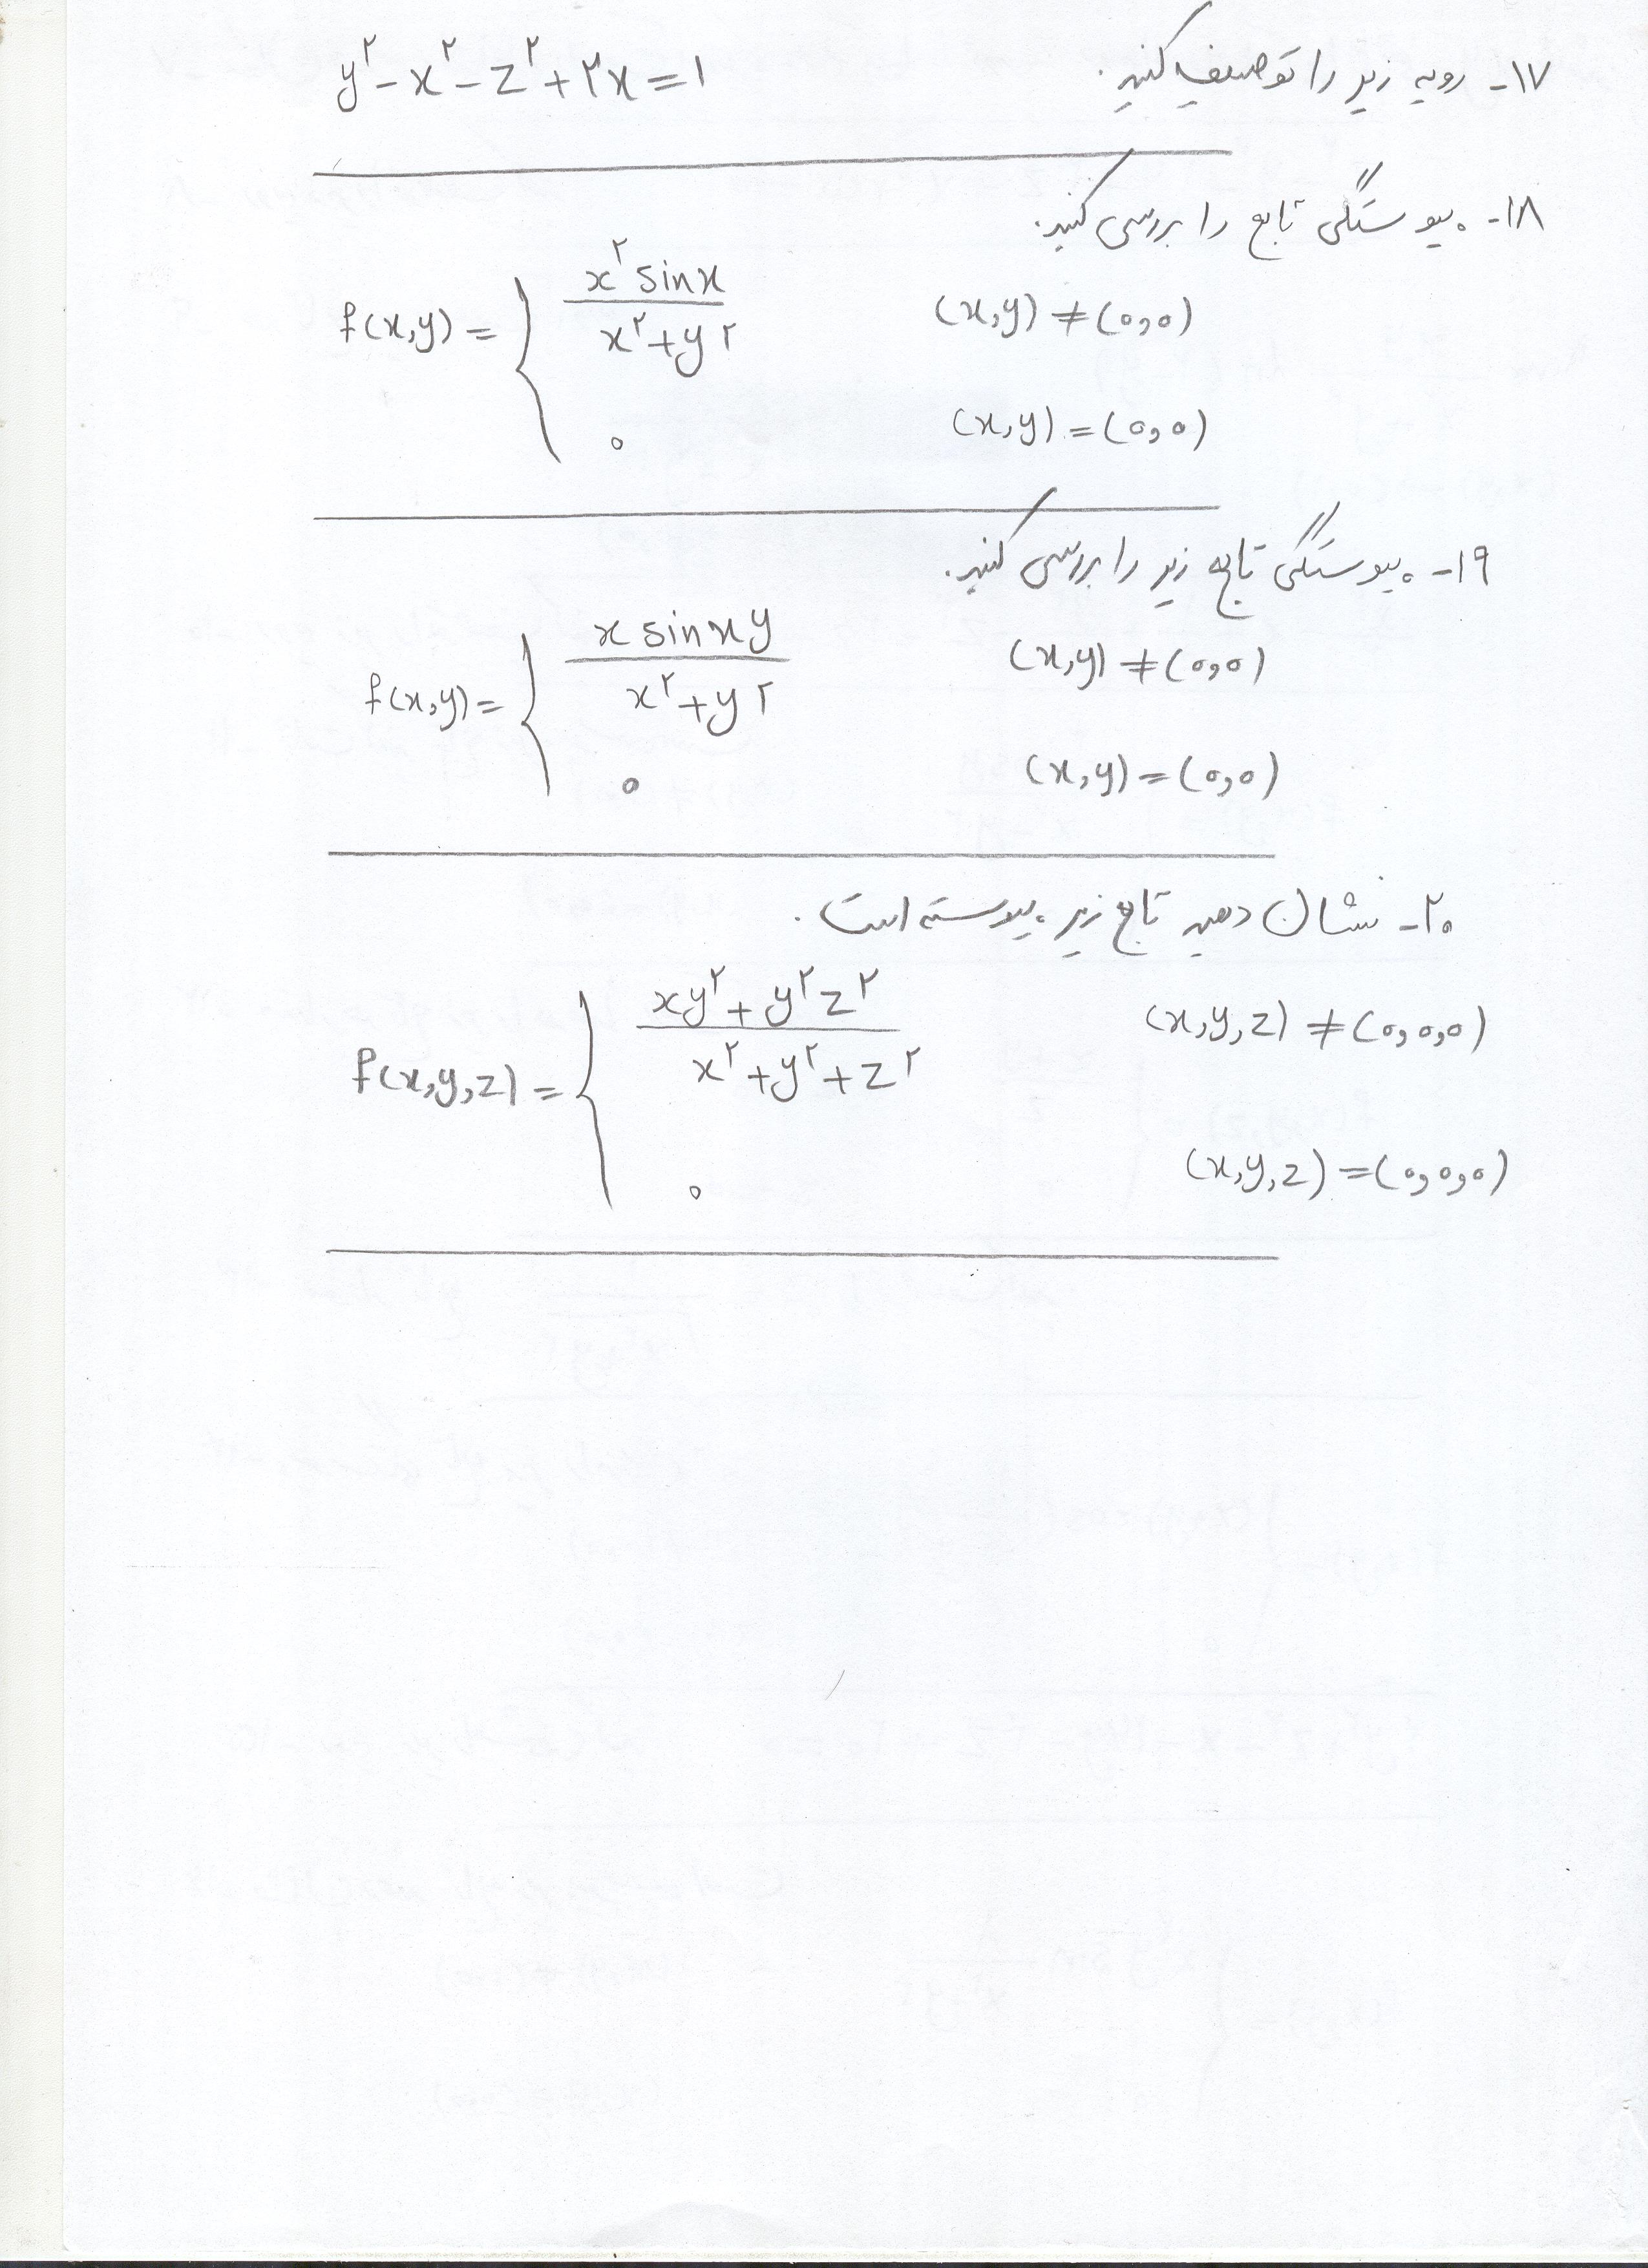 ۱۷- رویه زیر را توصیف کنید. y² - x² - z² + ۲x = ۱
۱۸- پیوستگی تابع را بررسی کنید.
f(x,y) = { x² sin x / x² + y² (x,y) ≠ (۰,۰)
۰ (x,y) = (۰,۰)
۱۹- پیوستگی تابع زیر را بررسی کنید.
f(x,y) = { x sin xy / x² + y² (x,y) ≠ (۰,۰)
۰ (x,y) = (۰,۰)
۲۰- نشان دهید تابع زیر پیوسته است.
f(x,y,z) = { xy² + y² z² / x² + y² + z² (x,y,z) ≠ (۰,۰,۰)
۰ (x,y,z) = (۰,۰,۰)